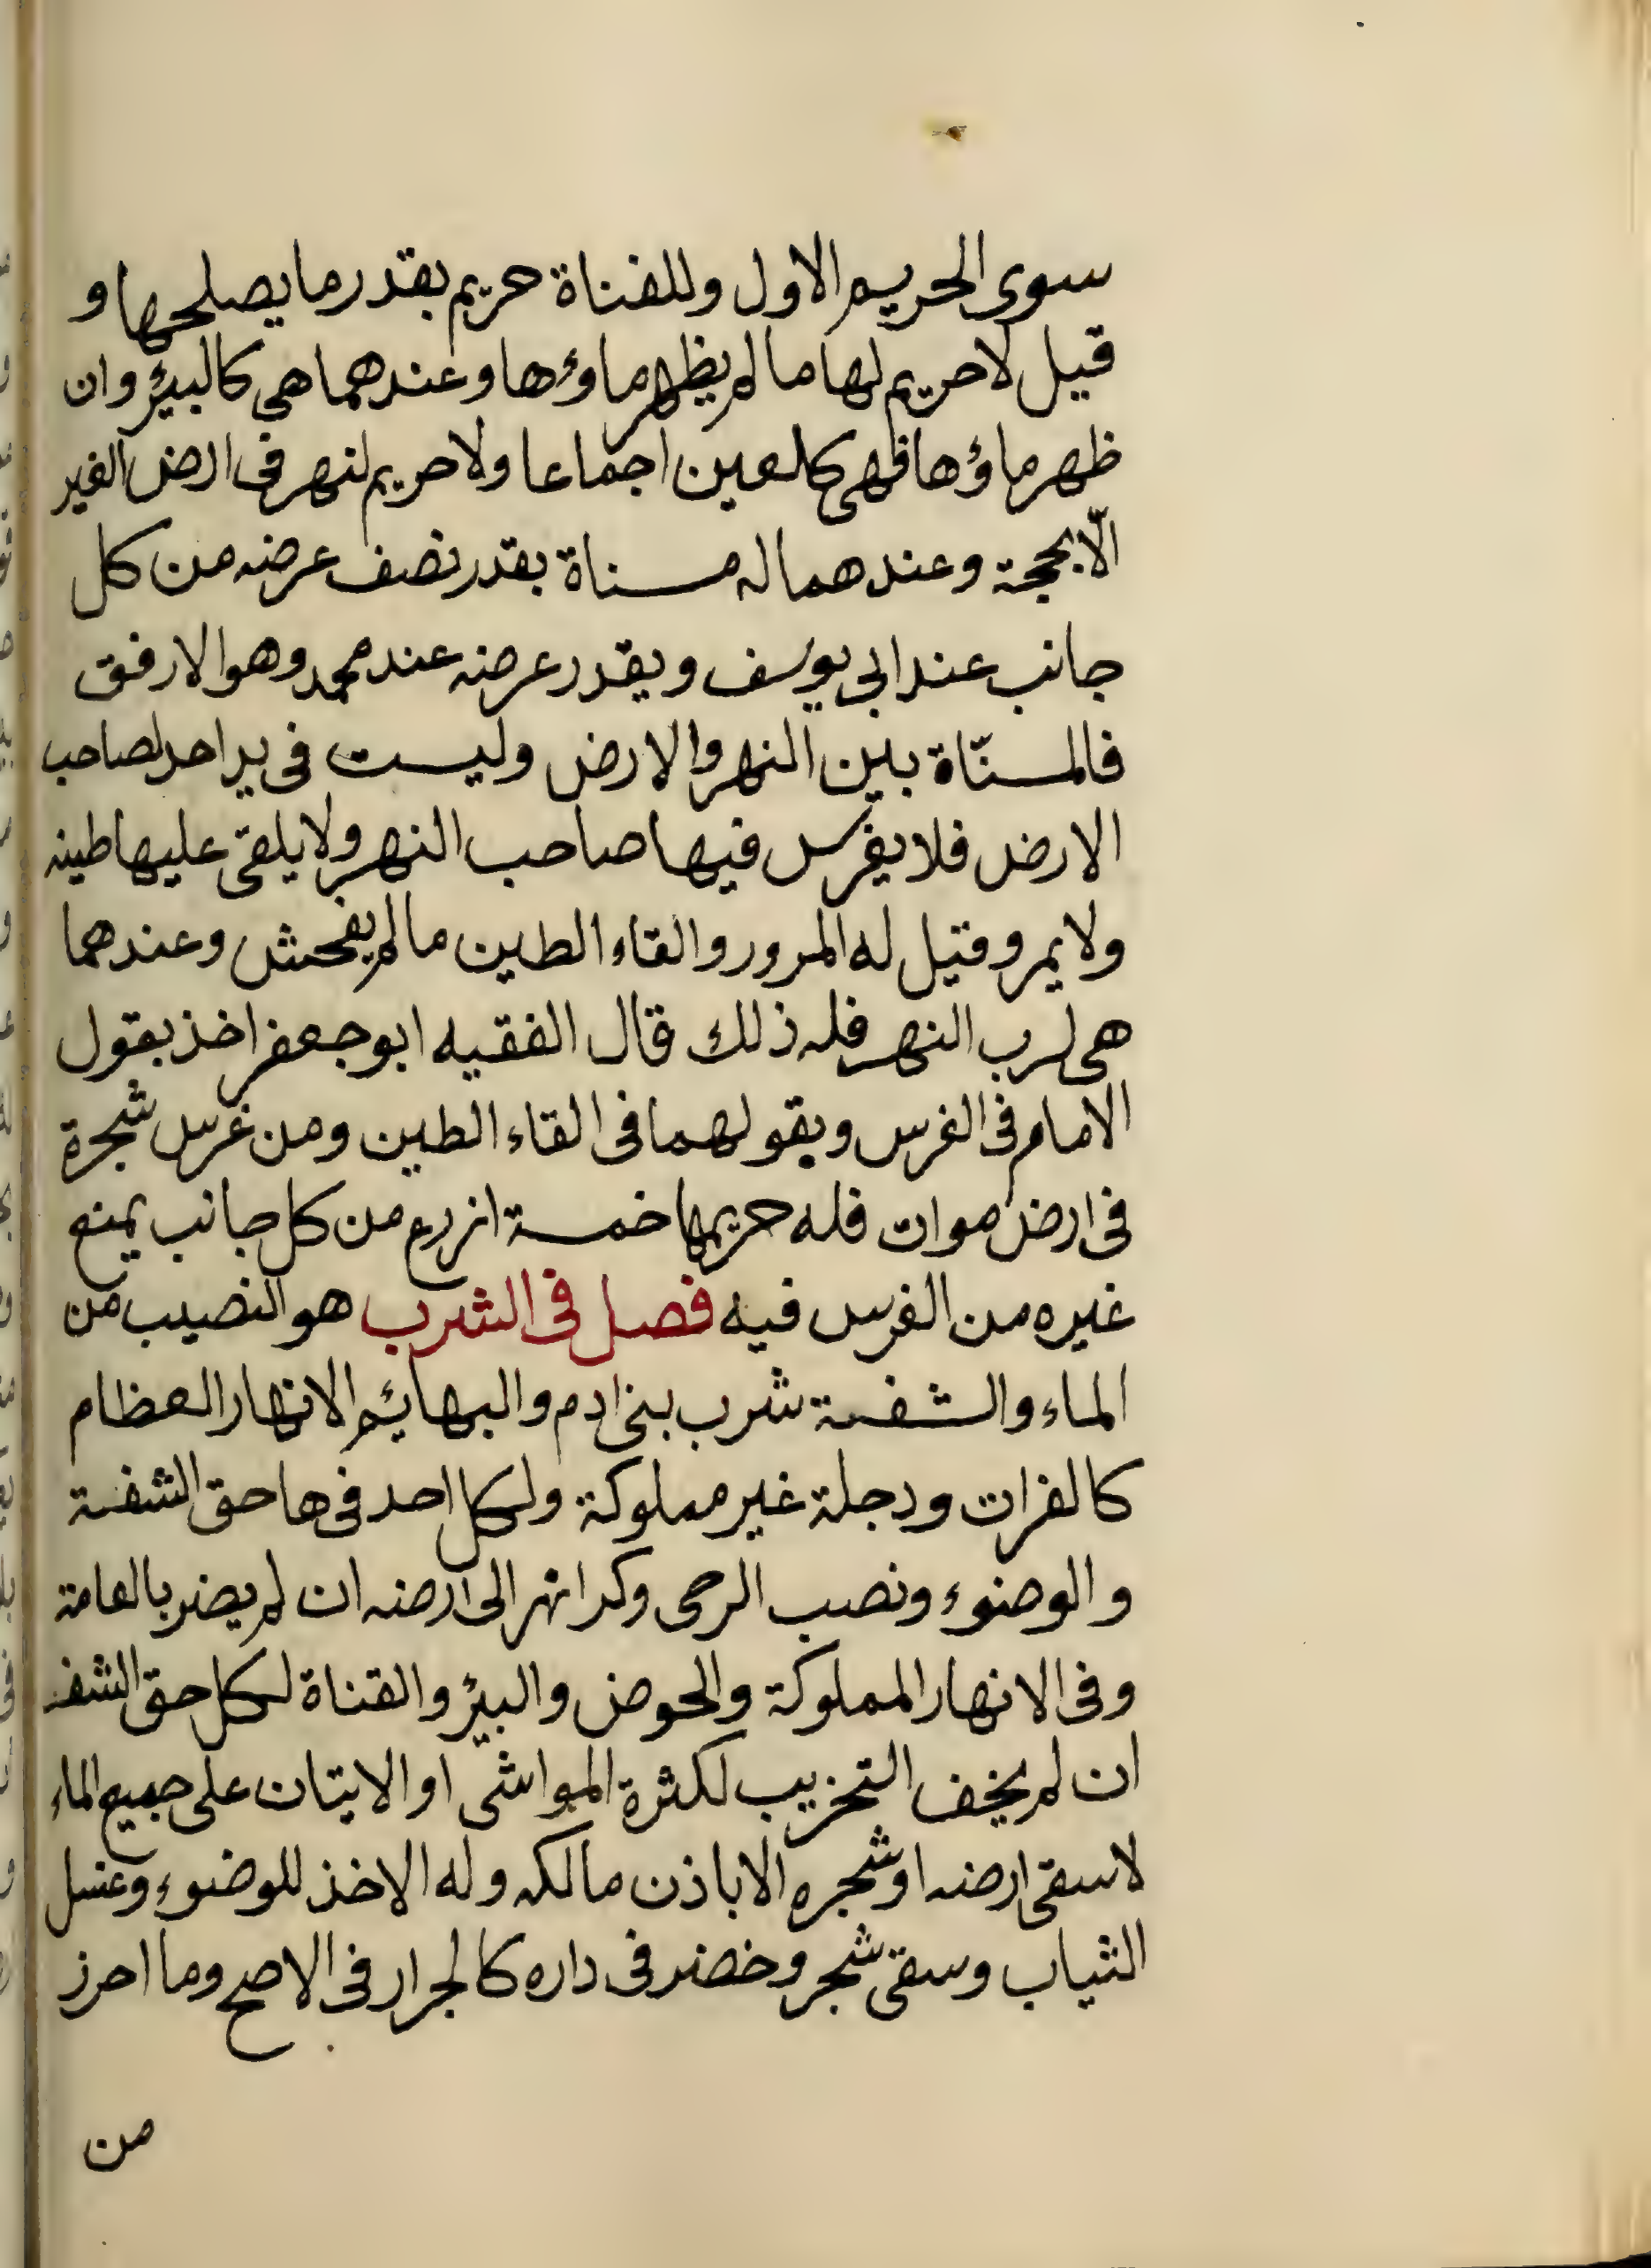 سوى الحريم الاول وللقناة حريم بقدر ما يصلحها و
قيل لا حريم لها ما لم يظهر ماؤها وعندهما هى كالبئر وان
ظهر ماؤها فهى كالعين اجماعا ولا حريم لنهر فى ارض الغير
الّا بحجة وعندهما له مسناة بقدر نصف عرضه من كل
جانب عند ابى يوسف وبقدر عرضه عند محمد وهو الارفق
فالمسنّاة بين النهر والارض وليست فى يد احد لصاحب
الارض فلا يغرس فيها صاحب النهر ولا يلقى عليها طينه
ولا يمر وقيل له المرور والقاء الطين ما لم يفحش وعندهما
هى لرب النهر فله ذلك قال الفقيه ابو جعفر اخذ بقول
الامام فى الغرس وبقولهما فى القاء الطين ومن غرس شجرة
فى ارض موات فله حريمها خمسة اذرع من كل جانب يمنع
غيره من الغرس فيه فصل فى الشرب هو النصيب من
الماء والشفة شرب بنى ادم والبهائم الانهار العظام
كالفرات ودجلة غير مملوكة ولكل احد فى ها حق الشفة
والوضوء ونصب الرحى وكرا نهر الى ارضه ان لم يضر بالعامة
وفى الانهار المملوكة والحوض والبئر والقناة لكل حق الشفة
ان لم يخف التخريب لكثرة المواشى او الاتيان على جميع الماء
لا سقى ارضه او شجره الا باذن مالكه وله الاخذ للوضوء وغسل
الثياب وسقى شجر وخضر فى داره كالجرار فى الاصح وما احرز
من